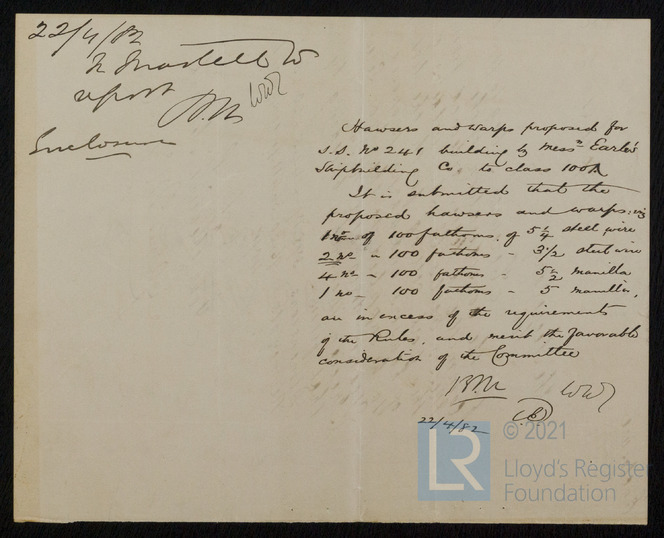 22/4/82
Mr Martell to
report
B.M. WW
Enclosure
Hawsers and warps proposed for
S.S. No 241 building by Messrs Earle's
Shipbuilding Co to class 100A
It is submitted that the
proposed hawsers and warps; viz
1 no of 100 fathoms of 5 1/4 steel wire
2 no " 100 fathoms " 3 1/2 steel wire
4 no " 100 fathoms " 5 1/2 manilla
1 no " 100 fathoms " 5 manilla,
are in excess of the requirements
of the Rules, and merit the favorable
consideration of the Committee
BM WW
22/4/82
© 2021
LR
Lloyd's Register
Foundation